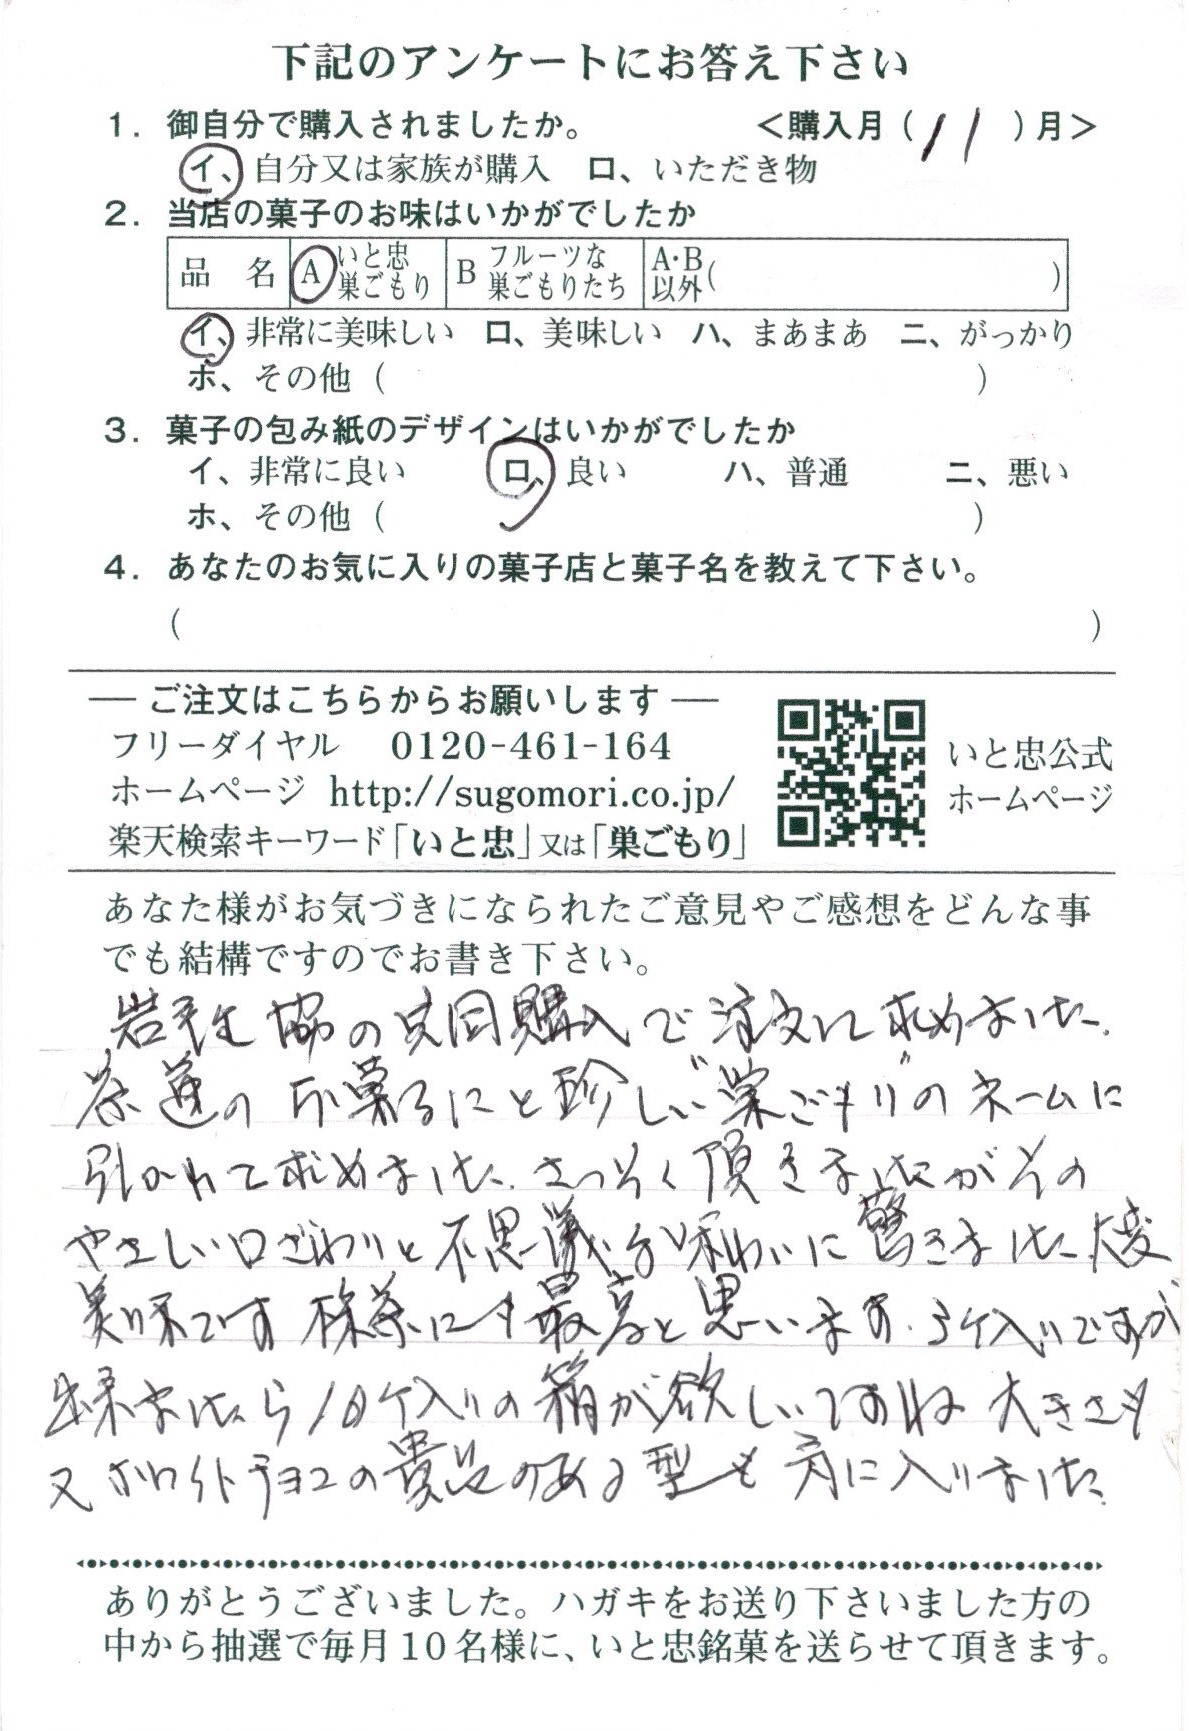 下記のアンケートにお答え下さい
1. 御自分で購入されましたか。 <購入月(11)月>
イ、自分又は家族が購入 ロ、いただき物
2. 当店の菓子のお味はいかがでしたか
品 名 A いと忠巣ごもり B フルーツな巣ごもりたち A・B以外( )
イ、非常に美味しい ロ、美味しい ハ、まあまあ ニ、がっかり
ホ、その他 ( )
3. 菓子の包み紙のデザインはいかがでしたか
イ、非常に良い ロ、良い ハ、普通 ニ、悪い
ホ、その他 ( )
4. あなたのお気に入りの菓子店と菓子名を教えて下さい。
( )
― ご注文はこちらからお願いします ―
フリーダイヤル 0120-461-164
ホームページ http://sugomori.co.jp/
楽天検索キーワード「いと忠」又は「巣ごもり」
いと忠公式
ホームページ
あなた様がお気づきになられたご意見やご感想をどんな事
でも結構ですのでお書き下さい。
岩手生協の共同購入で注文に求めました。
茶道のお菓子にと珍しい"巣ごもり"のネームに
引かれて求めました。さっそく頂きましたがその
やさしい口ざわりと不思議な味わいに驚きました 大変
美味です 抹茶にも最高と思います。3ケ入りですが
出来ましたら10ケ入りの箱が欲しいですね 大きさも
又ホワイトチョコの貴品のある型も 気に入りました。
ありがとうございました。ハガキをお送り下さいました方の
中から抽選で毎月10名様に、いと忠銘菓を送らせて頂きます。